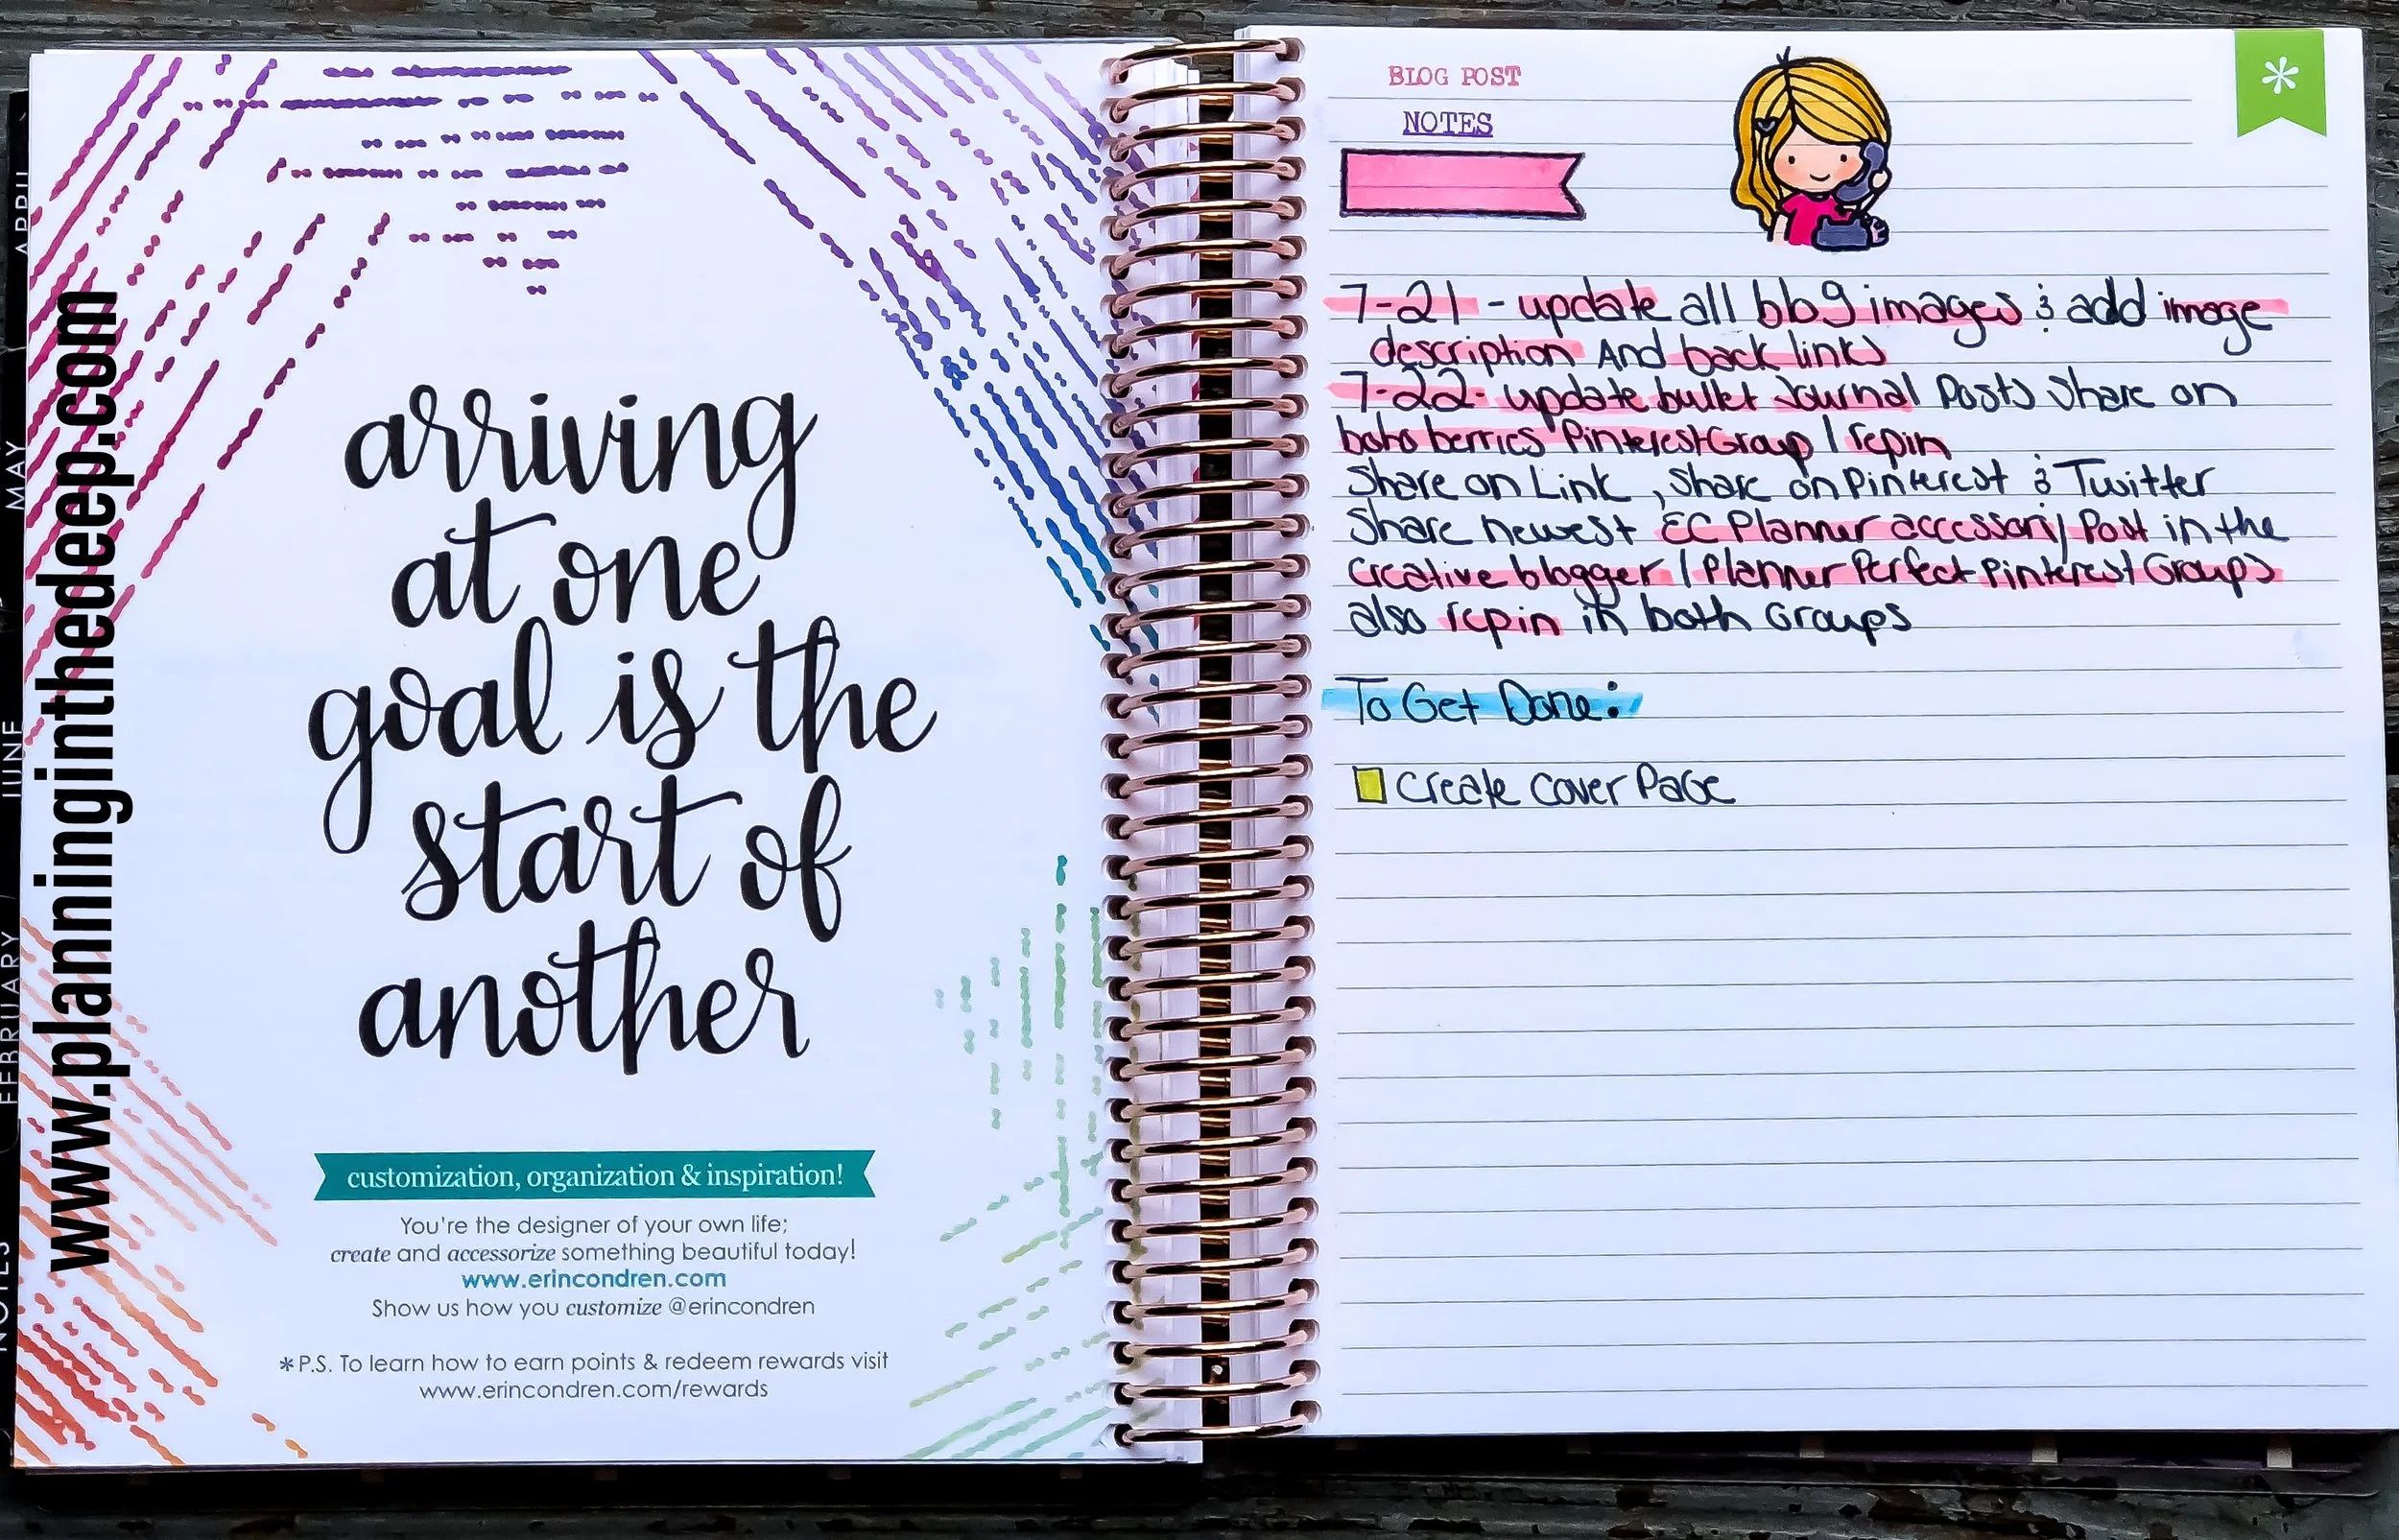 APRIL
MAY
JUNE
FEBRUARY
NOTES
www.planninginthedeep.com
arriving
at one
goal is the
start of
another
customization, organization & inspiration!
You're the designer of your own life;
create and accessorize something beautiful today!
www.erincondren.com
Show us how you customize @erincondren
*P.S. To learn how to earn points & redeem rewards visit
www.erincondren.com/rewards
BLOG POST
NOTES
*
7-21 - update all blog images & add image
description And back links
7-22- update bullet Journal Posts share on
boho berries Pinterest Group / repin
Share on Link, Share on Pinterest & Twitter
Share newest EC Planner accessory Post in the
Creative blogger / Planner Perfect Pinterest Groups
also repin in both Groups
To Get Done:
Create Cover Page